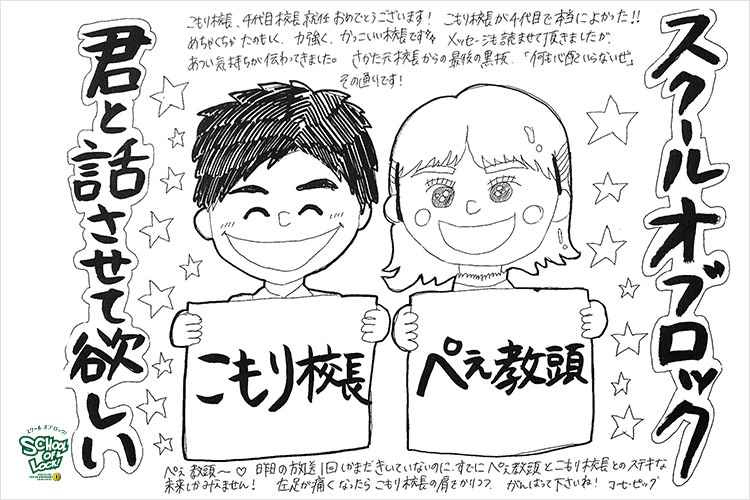 スクールオブロック
こもり校長、4代目校長就任おめでとうございます! こもり校長が4代目で本当によかった!!
めちゃくちゃたのもしく、力強く、かっこいい校長です メッセージも読ませて頂きましたが、
あつい気持ちが伝わってきました。 さかた元校長からの最後の黒板、「何も心配いらないぜ」
その通りです!
君と話させて欲しい
こもり校長
ぺえ教頭
スクール オブ ロック!
SCHOOL
OF
LOCK!
ぺえ教頭〜♡ 昨日の放送1回しかまだきいていないのに、すでにぺえ教頭とこもり校長とのステキな
未来しかみえません! 左足が痛くなったらこもり校長の肩をかりつつ、がんばって下さいね!